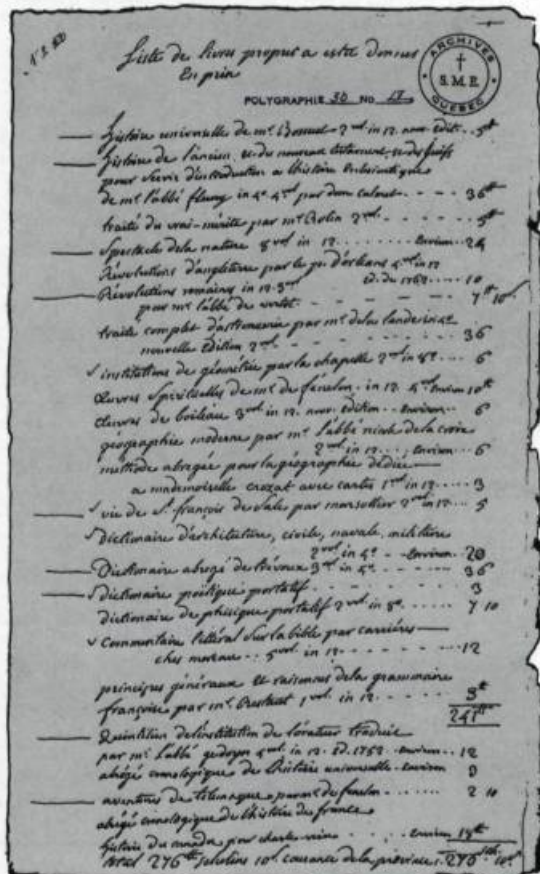 Liste de livres propres a estre donnés
En prix
ARCHIVES S.M.E. QUEBEC
POLYGRAPHIE 30 No 18
histoire universelle de mr. Bossuet 2 vol in 12. nouv. edit. 5tt
histoire de l'ancien et du nouveau testament, et des juifs
pour servir d'introduction a l'histoire
de mr. l'abbé fleury in 4o 4 vol par dom calmet 36tt
traité du vrai mérite par mr 2 vol. 5tt
Spectacle de la nature 8 vol in 12 environ 24
Révolutions d'angleterre par le pe. d'orleans 4 vol in 12
ed. de 1762 10
Révolutions romaines in 12. 3 vol
par mr. l'abbé de vertot. 7tt 10s
traité complet d'astronomie par mr. de la lande in 4o
nouvelle Edition 2 vol 36
institutions de géométrie par la chapelle 2 vol in 8o 6
Œuvres Spirituelles de mr. de fénelon in 12. 4 vol environ 10tt
Œuvres de boileau 3 vol in 12. nouv. edition environ 6
géographie moderne par mr. l'abbé nicole de la croix
2 vol in 12 environ 6
méthode abregée pour la géographie dédiée
a mademoiselle crozat avec cartes 1 vol in 12 3
vie de St. françois de Sale par marsollier 2 vol in 12 5
Dictionaire d'architecture, civile, navale, militaire
2 vol in 4o environ 20
Dictionaire abregé de trévoux 3 vol in 4o 36
Dictionaire poétique portatif 3
dictionaire de phisique portatif 2 vol in 8o 7 10
Commentaire littéral sur la bible par carrières
ches moreau 5 vol in 12 12
principes généraux et raisonnés de la grammaire
françoise par mr. Restaut 1 vol in 12 3tt
241tt
Quintilien de l'institution de l'orateur traduit
par mr. l'abbé gedoyn 4 vol in 12. ed. 1752 environ 12
abrégé cronologique de l'histoire universelle environ
aventures de telemaque par mr. de fenelon 2 10
abrégé cronologique de l'histoire de france
histoire du canada par charlevoix environ 18tt
total 276tt 10s courance de la province 276 10s